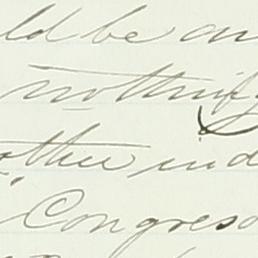 ld be an
nothing
other ind
Congress